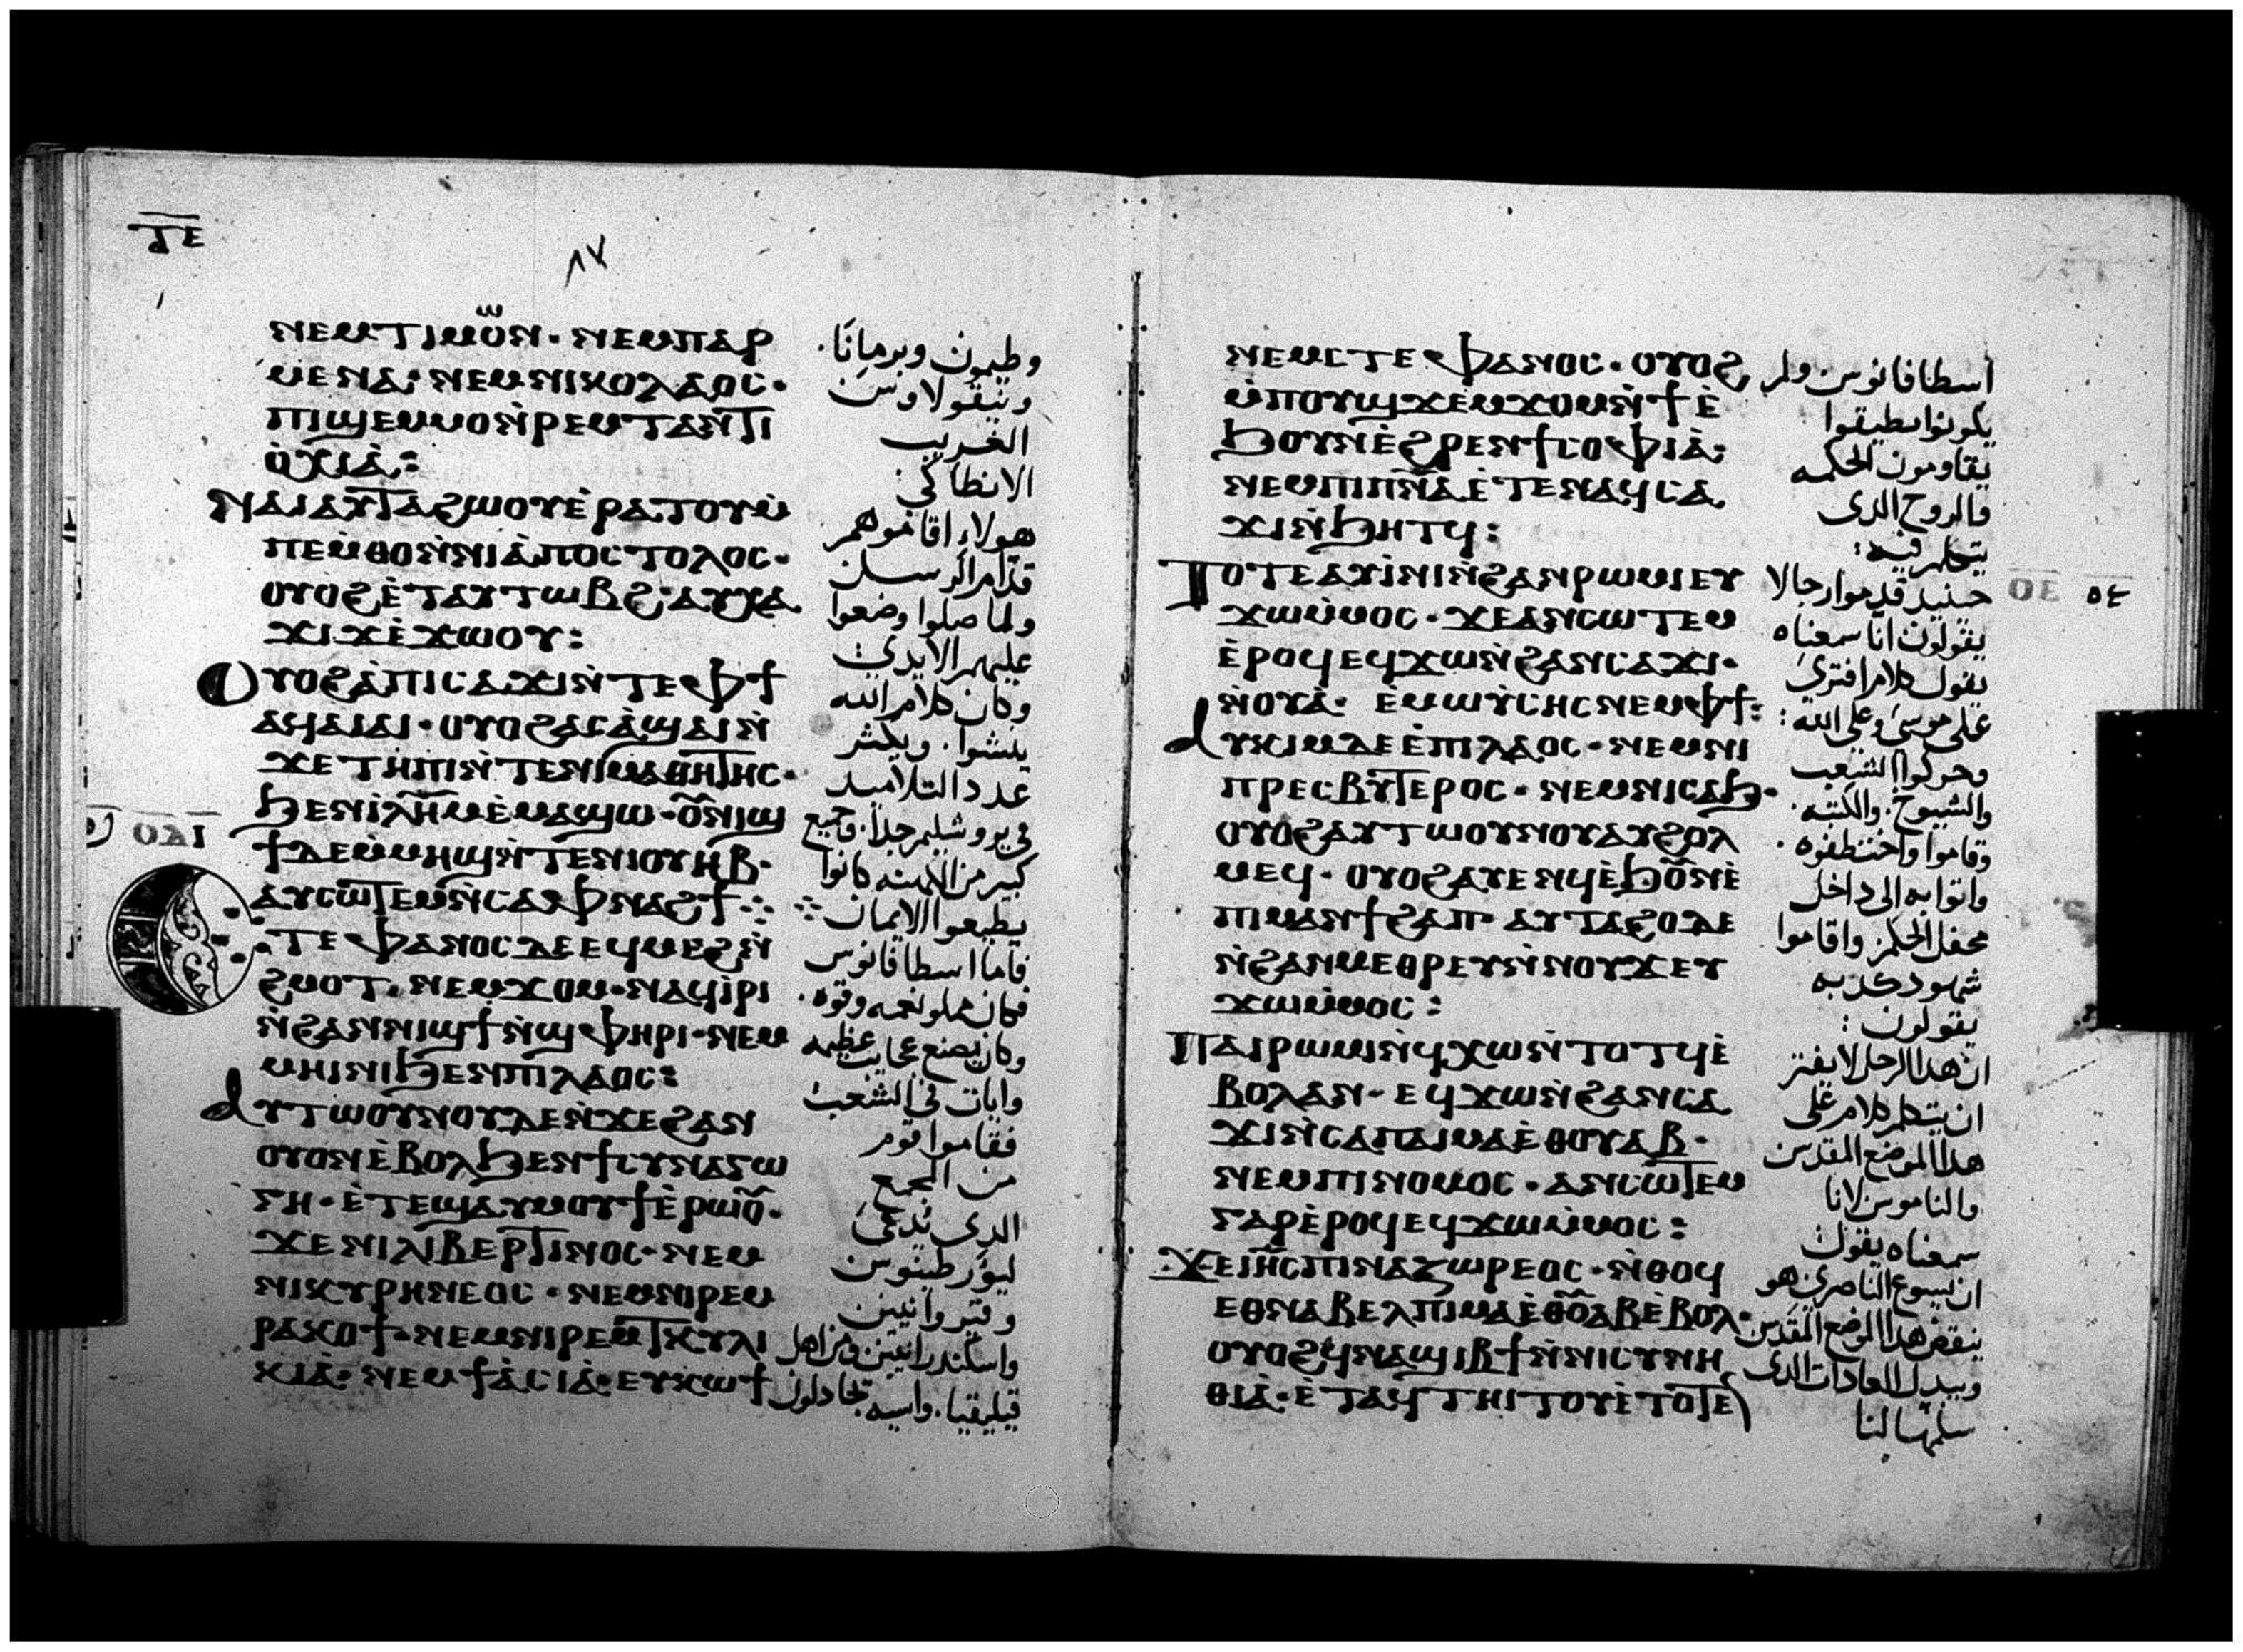 ⲧⲉ
٨٧
ⲛⲉⲙⲧⲓⲙⲟⲱⲛ · ⲛⲉⲙⲡⲁⲣ
ⲙⲉⲛⲁ · ⲛⲉⲙⲛⲓⲕⲟⲗⲁⲟⲥ ·
ⲡⲓϣⲉⲙⲙⲟⲛ̀ⲣⲉⲙⲧⲁⲛϯⲓ
ⲟ̀ⲭⲓⲁ̀ :
ⲛⲁⲓⲁⲩⲧⲁϩⲱⲟⲩⲉ̀ⲣⲁⲧⲟⲩⲙ̀
ⲡⲉⲙ̀ⲑⲟⲛ̀ⲛⲓⲁ̀ⲡⲟⲥⲧⲟⲗⲟⲥ ·
ⲟⲩⲟϩⲉ̀ⲧⲁⲩⲧⲱⲃϩ · ⲁⲩⲭⲁ
ϫⲓϫⲉ̀ϫⲱⲟⲩ :
ⲟⲩⲟϩⲁ̀ⲡⲓⲥⲁϫⲓⲛ̀ⲧⲉⲫϯ
ⲁϥⲁⲓⲁⲓ · ⲟⲩⲟϩⲁⲥⲁ̀ϣⲁⲓⲛ̀
ϫⲉⲧⲏⲡⲓⲛ̀ⲧⲉⲛⲓⲙⲁⲑⲏⲧⲏⲥ ·
ϧⲉⲛⲓ̀ⲗⲏⲙⲉ̀ⲙⲁϣⲱ · ⲟⲩⲛⲓϣ
ϯⲇⲉⲙ̀ⲙⲏϣⲛ̀ⲧⲉⲛⲓⲟⲩⲏⲃ ·
ⲁⲩⲥⲱⲧⲉⲙⲛ̀ⲥⲁⲫⲛⲁϩϯ
ⲧⲉⲫⲁⲛⲟⲥⲇⲉⲉϥⲙⲉϩⲛ̀
ϩⲙⲟⲧ · ⲛⲉⲙϫⲟⲙ · ⲛⲁϥⲓ̀ⲣⲓ
ⲛ̀ϩⲁⲛⲛⲓϣϯⲛ̀ϣⲫⲏⲣⲓ · ⲛⲉⲙ
ⲙⲏⲓⲛⲓϧⲉⲛⲡⲓⲗⲁⲟⲥ :
ⲁⲩⲧⲱⲟⲩⲛⲟⲩⲇⲉⲛ̀ϫⲉϩⲁⲛ
ⲟⲩⲟⲛⲉ̀ⲃⲟⲗϧⲉⲛϯⲥⲩⲛⲁⲅⲱ
ⲅⲏ · ⲉ̀ⲧⲉϣⲁⲩⲙⲟⲩϯⲉ̀ⲣⲱⲟⲩ ·
ϫⲉⲛⲓⲗⲓⲃⲉⲣⲧⲓⲛⲟⲥ · ⲛⲉⲙ
ⲛⲓⲕⲩⲣⲏⲛⲉⲟⲥ · ⲛⲉⲙⲛⲓⲣⲉⲙ
ⲣⲁⲕⲟϯ · ⲛⲉⲙⲛⲓⲣⲉⲙⲧⲕⲩⲗⲓ
ⲕⲓⲁ̀ · ⲛⲉⲙϯⲁ̀ⲥⲓⲁ̀ · ⲉⲩⲕⲱϯ
وطيمون وبرمانا .
ونيقولاوس
الغريب
الانطاكي .
هولاء اقاموهم
قدام الرسل
ولما صلوا وضعوا
عليهم الايدي
وكان كلام الله
ينشوا . ويكثر
عدد التلاميد
في يروشليم جدا . وجمع
كبير من الكهنه كانوا
يطيعوا الايمان
فاما اسطافانوس
فكان مملو نعمه وقوه .
وكان يصنع عجايب عظيمه
وايات في الشعب
فقاموا قوم
من المجمع
الدي تدعي
ليبرطينوس
وقيروانيين
واسكندرانيين ومن اهل
قيليقيا . واسيه يجادلون
ⲛⲉⲙⲥⲧⲉⲫⲁⲛⲟⲥ · ⲟⲩⲟϩ
ⲙ̀ⲡⲟⲩϣϫⲉⲙϫⲟⲙⲛ̀ϯⲉ̀
ϧⲟⲩⲛⲉ̀ϩⲣⲉⲛϯⲥⲟⲫⲓⲁ̀ :
ⲛⲉⲙⲡⲓⲡⲛⲁⲉ̀ⲧⲉⲛⲁϥⲥⲁ
ϫⲓⲛ̀ϧⲏⲧϥ :
ⲧⲟⲧⲉⲁⲩⲓ̀ⲛⲓⲛ̀ϩⲁⲛⲣⲱⲙⲓⲉⲩ
ϫⲱⲙ̀ⲙⲟⲥ · ϫⲉⲁⲛⲥⲱⲧⲉⲙ
ⲉ̀ⲣⲟϥⲉϥϫⲱⲛ̀ϩⲁⲛⲥⲁϫⲓ ·
ⲛ̀ⲟⲩⲁ̀ · ⲉ̀ⲙⲱⲩ̀ⲥⲏⲥⲛⲉⲙⲫϯ :
ⲁⲩⲕⲓⲙⲇⲉⲉ̀ⲡⲓⲗⲁⲟⲥ · ⲛⲉⲙⲛⲓ
ⲡⲣⲉⲥⲃⲩⲧⲉⲣⲟⲥ · ⲛⲉⲙⲛⲓⲥⲁϧ ·
ⲟⲩⲟϩⲁⲩⲧⲱⲟⲩⲛⲟⲩⲁⲩϩⲟⲗ
ⲙⲉϥ · ⲟⲩⲟϩⲁⲩⲉⲛϥⲉ̀ϧⲟⲩⲛⲉ̀
ⲡⲓⲙⲁⲛϯϩⲁⲡ · ⲁⲩⲧⲁϩⲟⲇⲉ
ⲛ̀ϩⲁⲛⲙⲉⲑⲣⲉⲩⲛ̀ⲛⲟⲩϫⲉⲩ
ϫⲱⲙ̀ⲙⲟⲥ :
ⲡⲁⲓⲣⲱⲙⲓⲛ̀ϥⲭⲱⲛ̀ⲧⲟⲧϥⲉ̀
ⲃⲟⲗⲁⲛ · ⲉϥϫⲱⲛ̀ϩⲁⲛⲥⲁ
ϫⲓⲛ̀ⲥⲁⲡⲁⲓⲙⲁⲉ̀ⲑⲟⲩⲁⲃ ·
ⲛⲉⲙⲡⲓⲛⲟⲙⲟⲥ · ⲁⲛⲥⲱⲧⲉⲙ
ⲅⲁⲣⲉ̀ⲣⲟϥⲉϥϫⲱⲙ̀ⲙⲟⲥ :
ϫⲉⲓⲏⲥⲡⲓⲛⲁⲍⲱⲣⲉⲟⲥ · ⲛ̀ⲑⲟϥ
ⲉⲑⲛⲁⲃⲉⲗⲡⲓⲙⲁⲉ̀ⲑⲟⲩⲁⲃⲉ̀ⲃⲟⲗ ·
ⲟⲩⲟϩϥⲛⲁϣⲓⲃϯⲛ̀ⲛⲓⲥⲩⲛⲏ
ⲑⲓⲁ̀ · ⲉ̀ⲧⲁϥⲧⲏⲓⲧⲟⲩⲉ̀ⲧⲟⲧⲉ
اسطافانوس ولم
يكونوا يطيقوا
يقاومون الحكمه
والروح الدي
يتكلم فيه :
حينيد قدموا رجالا
يقولون انا سمعناه
يقول كلام افتري
علي موسي وعلي الله :
وحركوا الشعب
والشيوخ . والكتبه .
وقاموا واختطفوه .
واتوا به الي داخل
محفل الحكم واقاموا
شهود كدبه
يقولون :
ان هدا الرجل لا يفتر
ان يتكلم كلام علي
هدا الموضع المقدس
والناموس لانا
سمعناه يقول
ان يسوع الناصري هو
ينقض هدا الموضع المقدس
ويبدل العادات الدي
سلمها لنا